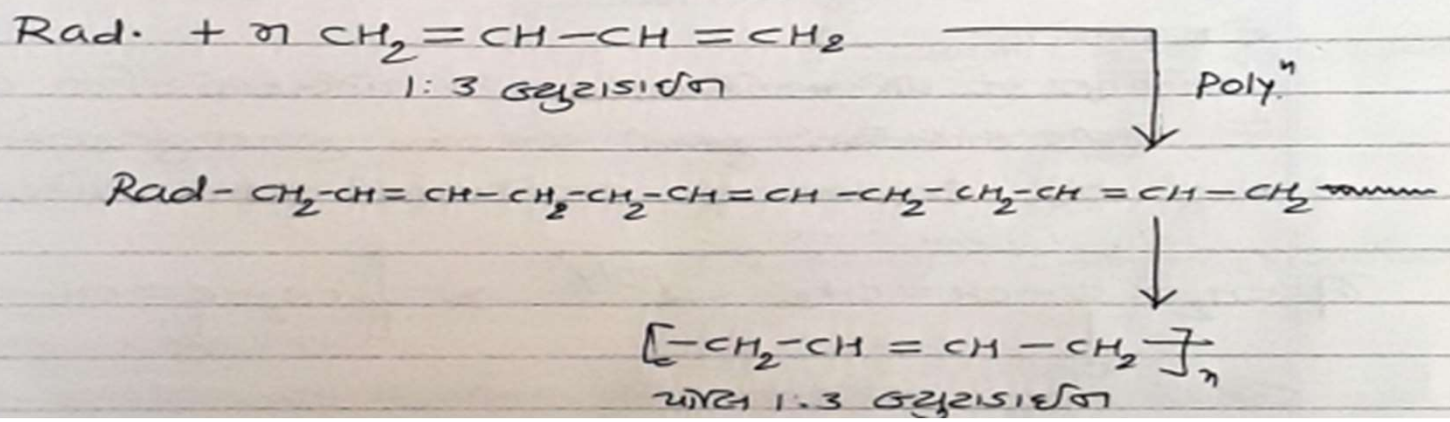 Rad. + n CH₂ = CH – CH = CH₂
1:3 બ્યુટાડાઈન
Polyⁿ.
Rad – CH₂-CH = CH – CH₂-CH₂-CH = CH – CH₂ – CH₂-CH = CH – CH₂
[-CH₂-CH = CH – CH₂-]ₙ
પોલિ 1.3 બ્યુટાડાઈન